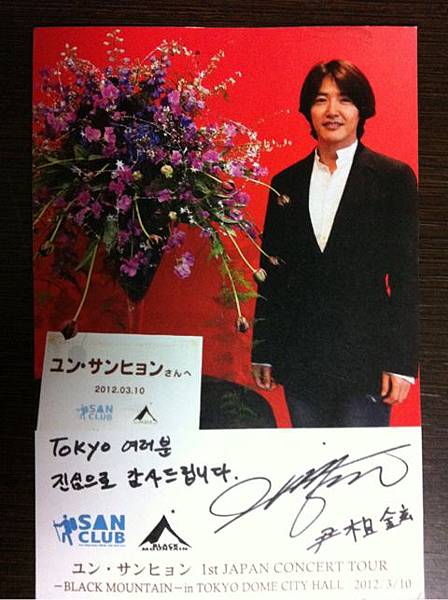 ユン・サンヒョンさんへ
2012.03.10
SAN
CLUB
TOKYO 여러분
진심으로 감사드립니다.
尹相鉉
SAN
CLUB
BLACK
MOUNTAIN
ユン・サンヒョン 1st JAPAN CONCERT TOUR
−BLACK MOUNTAIN−in TOKYO DOME CITY HALL 2012. 3/10